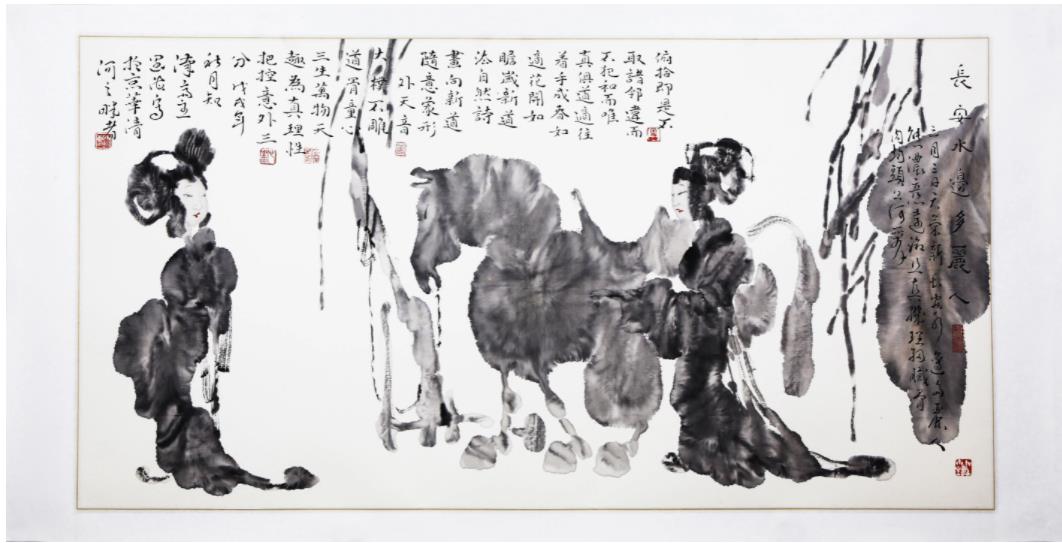 長安水邊多麗人
三月三日天氣新長安水邊多麗人
態濃意遠淑且真肌理細膩骨
肉勻頭上何所有
俯拾即是不
取諸鄰違而
不犯和而唯
真俱道適往
着手成春如
適花開如
瞻歲新道
法自然詩
畫向新道
隨意象形
外天音
大樸不雕
道骨童心
三生萬物天
趣為真理性
把控意外三
分 戊戌年
秋月知
寫
於京華清
河之畔者